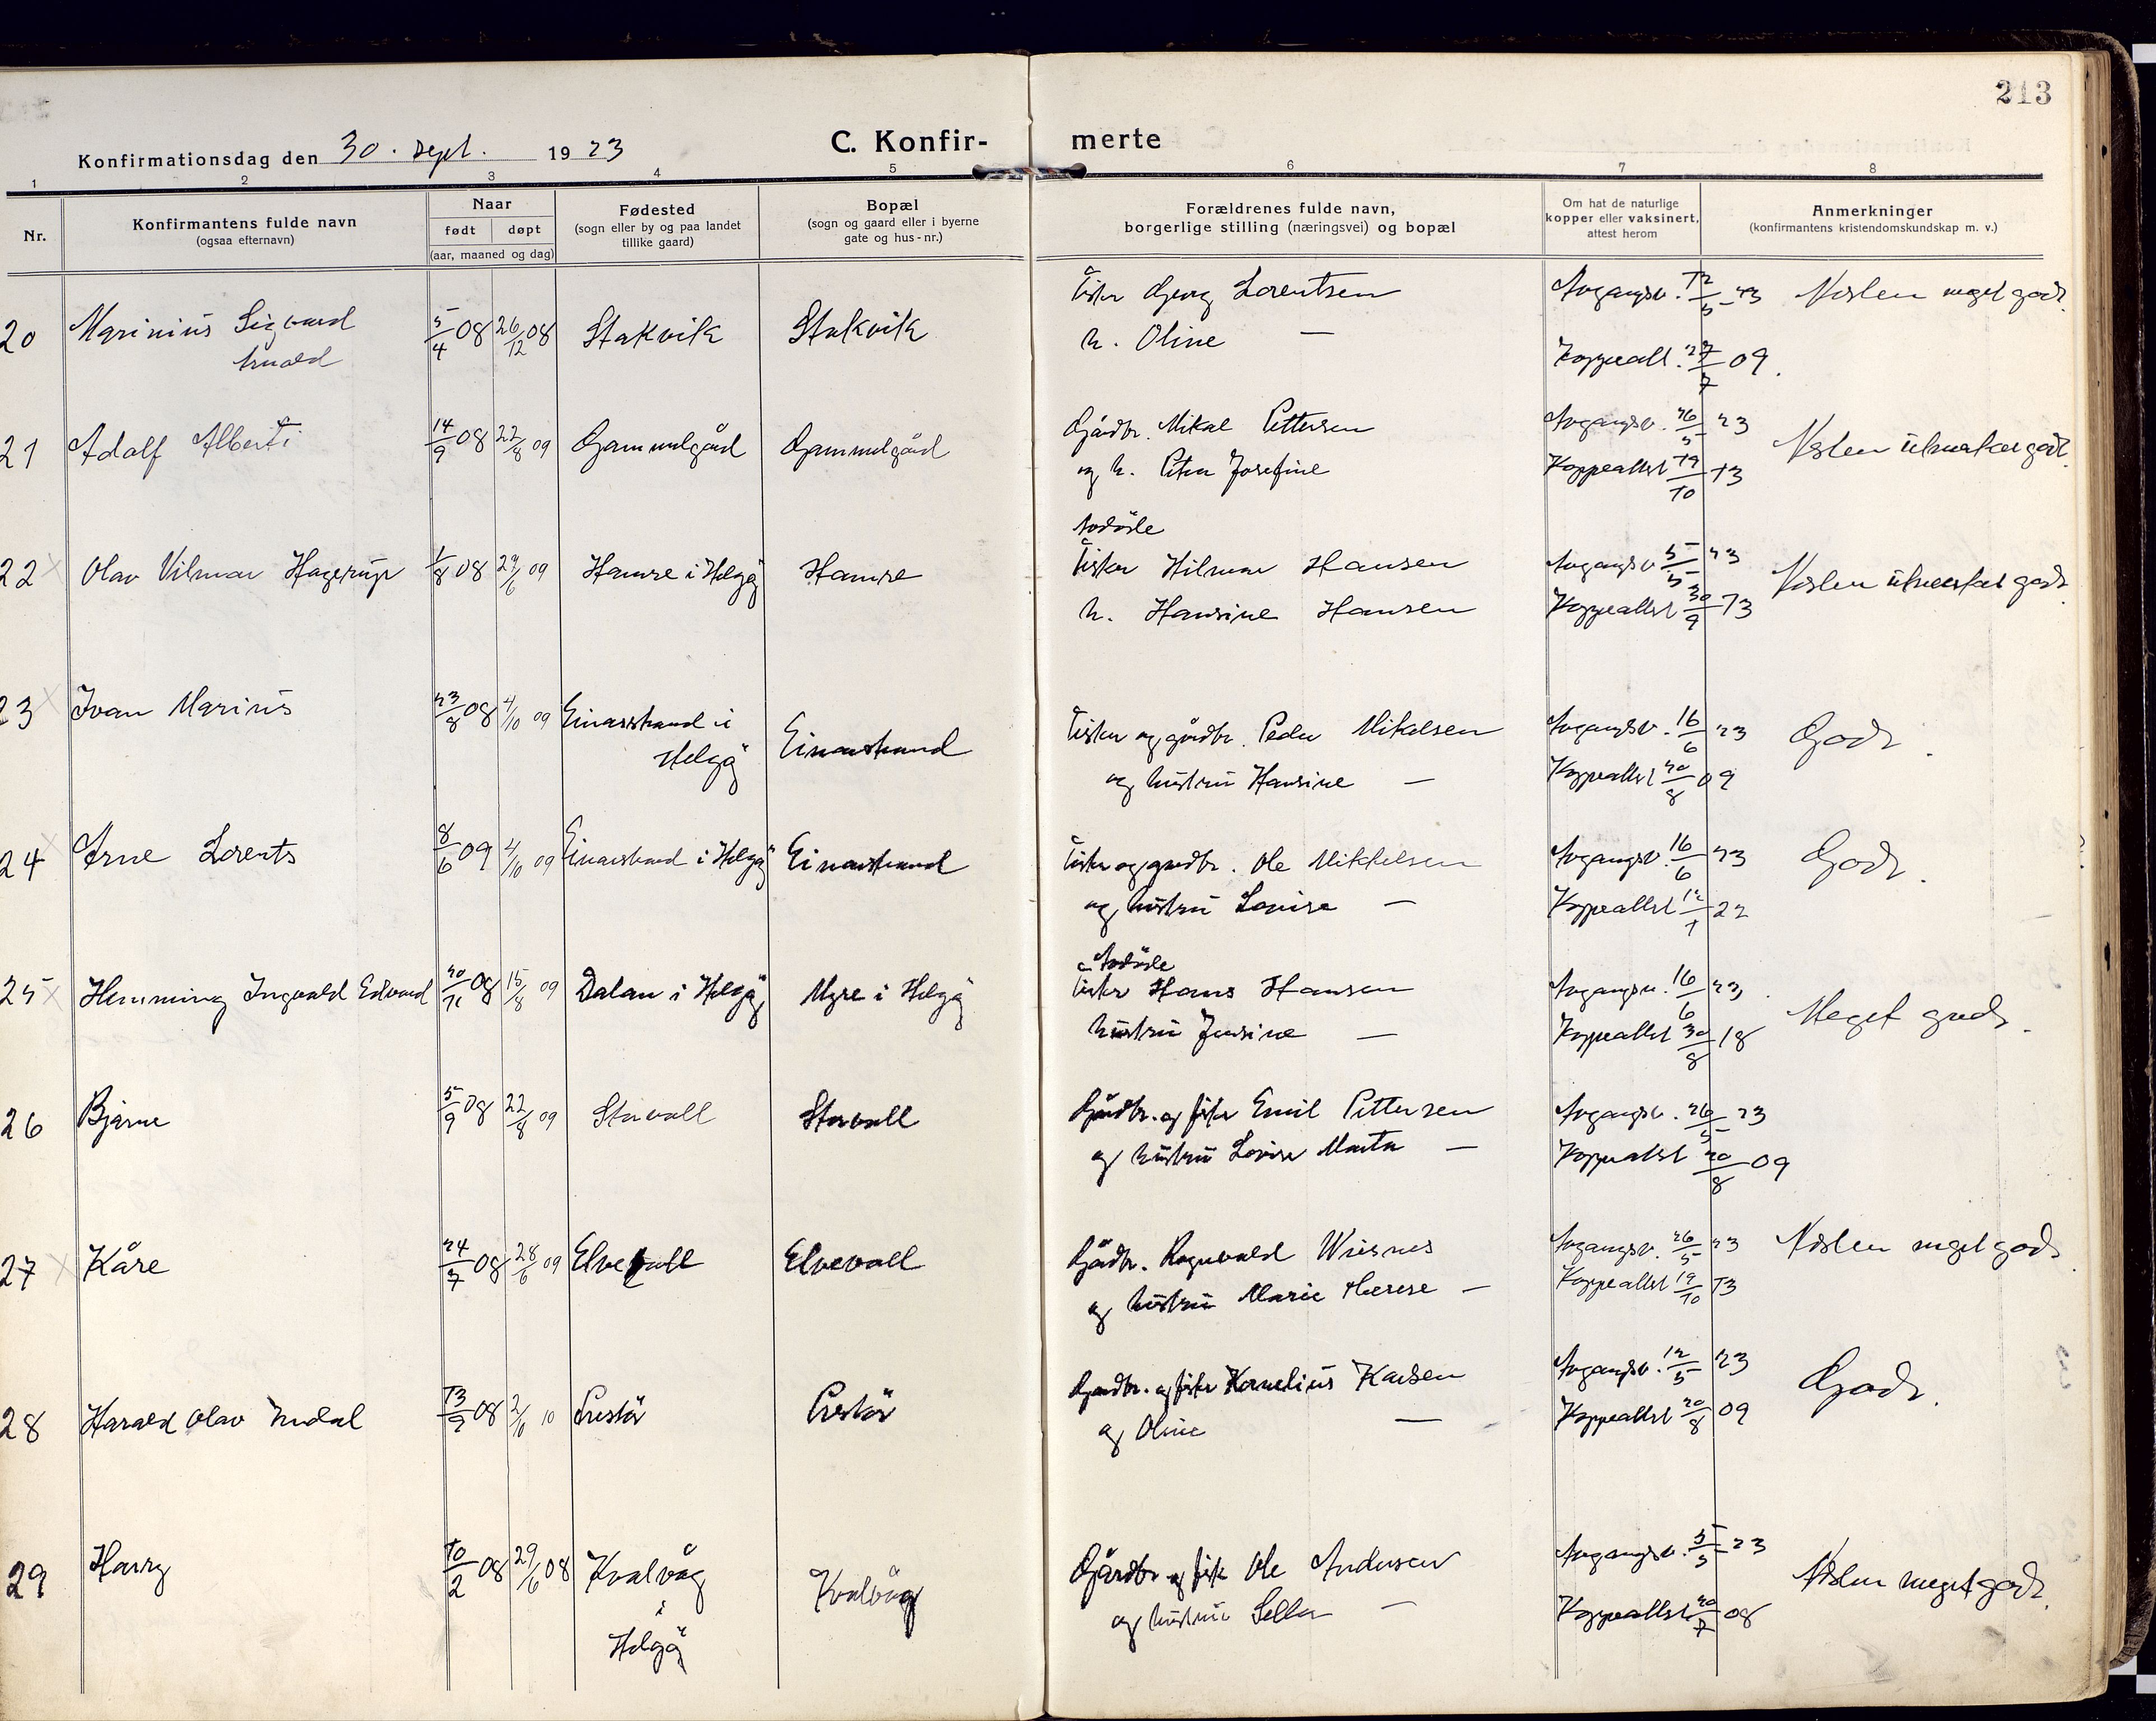 213
Konfirmationsdag den 30. sept. 1923
C. Konfir- merte
1 2 3 4 5 6 7 8
Nr.
Konfirmantens fulde navn
(ogsaa efternavn)
Naar
født døpt
(aar, maaned og dag)
Fødested
(sogn eller by og paa landet
tillike gaard)
Bopæl
(sogn og gaard eller i byerne
gate og hus-nr.)
Forældrenes fulde navn,
borgerlige stilling (næringsvei) og bopæl
Om hat de naturlige
kopper eller vaksinert,
attest herom
Anmerkninger
(konfirmantens kristendomskundskap m. v.)
20 Marinius Sigvard 5/4 08 26/12 08 Stakvik Stakvik Fisker Georg Lorentsen Avgangsv. 12/5 23 Næsten meget godt.
Arnold h. Oline — Koppeatt. 27/7 09.
21 Adolf Albert 14/9 08 22/8 09 Gammelgård Gammelgård Gårdbr. Mikal Pettersen Avgangsv. 26/5 23 Næsten utmerket godt.
og h. Petra Josefine Koppeattst 19/10 13
22 Olav Vilmar Hagerup 1/8 08 29/6 09 Hamre i Helgø Hamre Avdøde
Fisker Hilmar Hansen Avgangsv 5/5 23 Næsten utmerket godt
h. Hansine Hansen Koppeattst 30/9 13
23 Ivan Marius 23/8 08 4/10 09 Einarstrand i Helgø Einarstrand Fisker og gårdbr. Peder Mikalsen Avgangsv. 16/6 23 Godt.
og hustru Hansine — Koppeattst 20/8 09
24 Arne Lorents 8/6 09 4/10 09 Einarstrand i Helgø Einarstrand Fisker og gardbr. Ole Mikkelsen Avgangsv. 16/6 23 Godt.
og hustru Lovise — Koppeattst 12/1 22
25 Hemming Ingvald Edvard 20/11 08 15/8 09 Dalan i Helgø Myre i Helgø Avdøde
Fisker Hans Hansen Avgangsv. 16/6 23. Meget godt.
hustru Jensine — Koppeattst 30/8 18
26 Bjarne 5/9 08 22/8 09 Storvoll Storvoll Gårdbr. og fisker Emil Pettersen Avgangsv. 26/5 23
og hustru Lovise Marta — Koppeattst 20/8 09
27 Kåre 24/7 08 28/6 09 Elvevoll Elvevoll Gårdbr. Ragnvald Wiesnes Avgangsv. 26/5 23 Næsten meget godt.
og hustru Marie Therese — Koppeattst 19/10 13
28 Harald Olav 13/9 08 2/6 10 Prestør Prestør Gardbr. og fisker Kornelius Karlsen Avgangsv. 12/5 23 Godt.
og Oline — Koppeattst 20/8 09
29 Harry 10/2 08 29/6 08 Kvalvåg i Helgø Kvalvåg Gårdbr og fisk Ole Andersen Avgangsv. 5/5 23 Næsten meget godt.
og hustru — Koppeattst 20/7 08